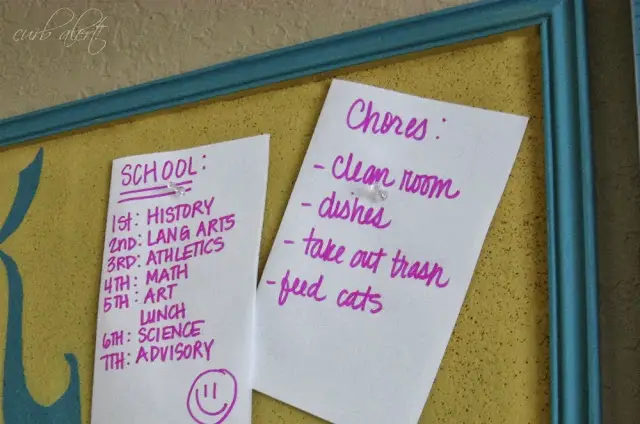 curb alert!
SCHOOL:
1st: HISTORY
2nd: LANG ARTS
3RD: ATHLETICS
4TH: MATH
5TH: ART
LUNCH
6TH: SCIENCE
7TH: ADVISORY
Chores:
- clean room
- dishes
- take out trash
- feed cats